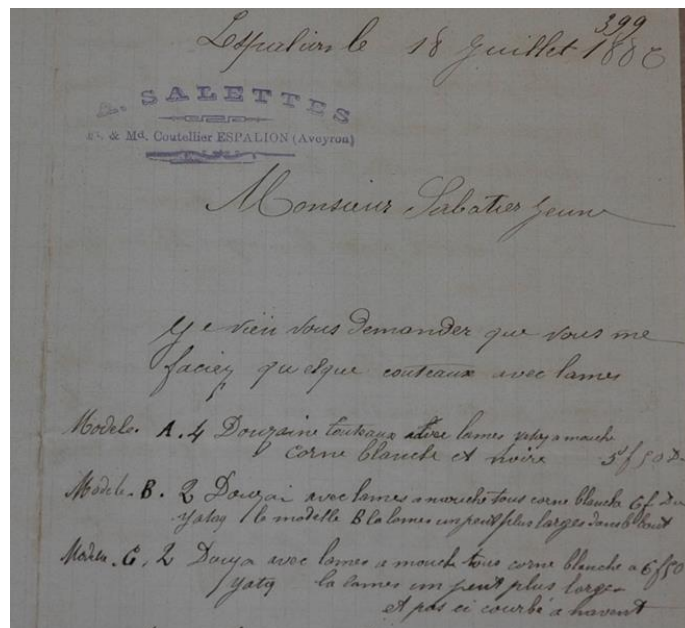 399
Espalion le 18 Juillet 1886
SALETTES
& Md. Coutellier ESPALION (Aveyron)
Monsieur Sabatier Jeune
Je vien vous demander que vous me
faciez quelque couteaux avec lames
Modele. A. 4 Douzaine couteaux avec lames yatag a mouche
corne blanche et noire 5f50
Modele. B. 2 Douzai avec lames a mouche tous corne blanche 6f
Yatag / le modelle B la lames un peut plus larges dans bout
Modele. C. 2 Douza avec lames a mouche tous corne blanche a 6f50
yatag la lames un peut plus large
et pas ci courbé a navent